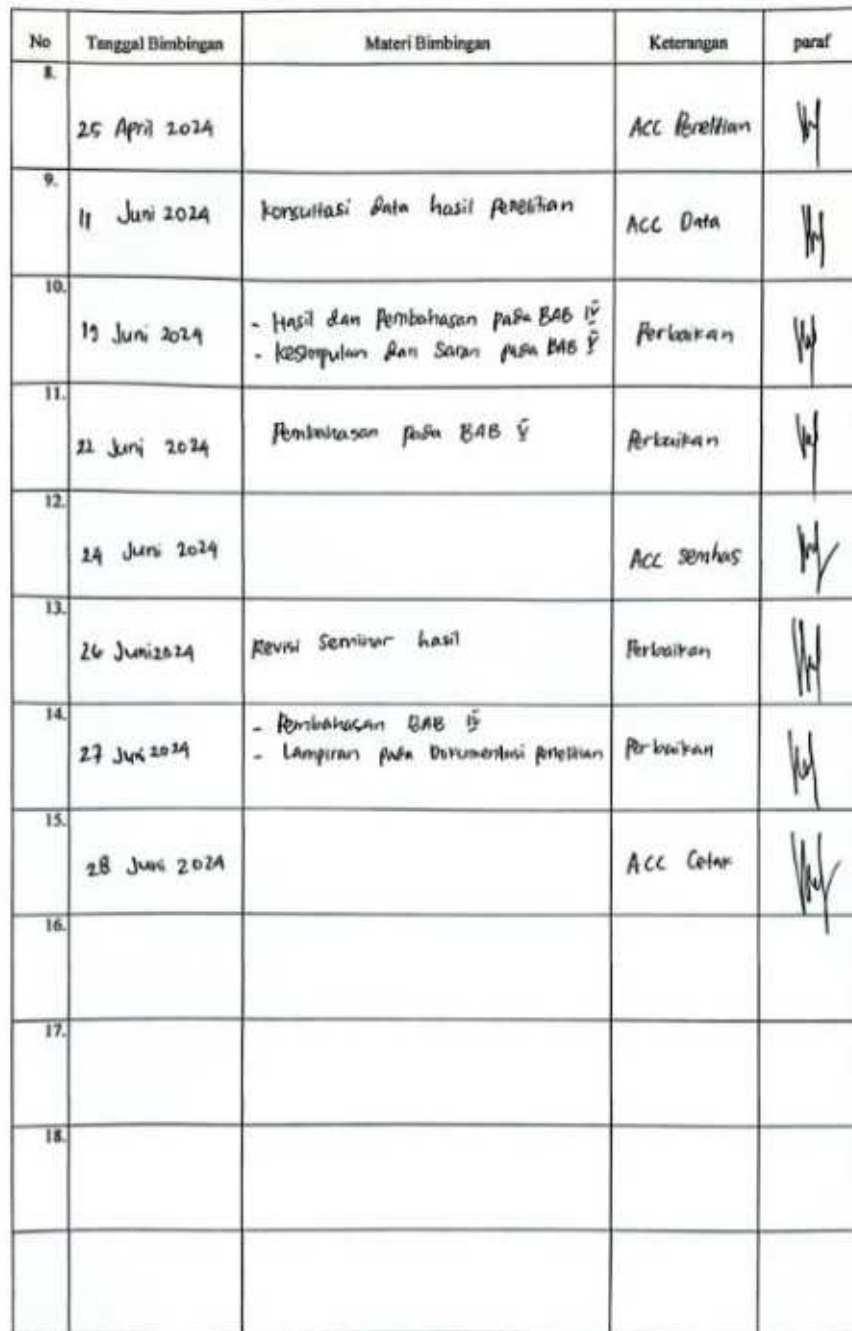 No Tanggal Bimbingan Materi Bimbingan Keterangan paraf
8.
25 April 2024 ACC Penelitian
9.
11 Juni 2024 konsultasi data hasil penelitian ACC Data
10.
19 Juni 2024 - Hasil dan Pembahasan pada BAB IV Perbaikan
- kesimpulan dan Saran pada BAB V
11.
22 Juni 2024 Pembahasan pada BAB V Perbaikan
12.
24 Juni 2024 ACC semhas
13.
26 Juni 2024 Revisi Seminar hasil Perbaikan
14.
27 Juni 2024 - Pembahasan BAB IV Perbaikan
- Lampiran pada Dokumentasi penelitian
15.
28 Juni 2024 ACC Cetak
16.
17.
18.